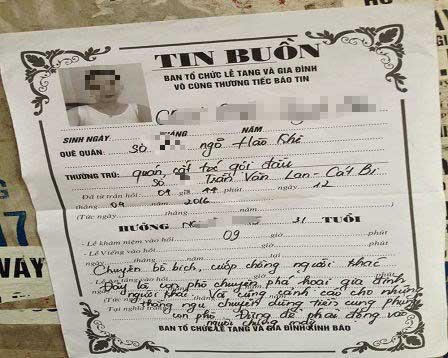 TIN BUỒN
BAN TỔ CHỨC LỄ TANG VÀ GIA ĐÌNH
VÔ CÙNG THƯƠNG TIẾC BÁO TIN
SINH NGÀY: THÁNG NĂM
QUÊ QUÁN: Số ngõ Hào Khê
THƯỜNG TRÚ: quán cắt tóc gội đầu
Số Trần Văn Lan - Cát Bi
Đã từ trần hồi 09 giờ 44 phút, ngày 12
tháng 04 năm 2016
(Tức ngày tháng năm )
HƯỞNG 31 TUỔI
- Lễ khâm niệm vào hồi 09 giờ phút
ngày tháng năm
- Lễ Viếng vào hồi giờ phút
Chuyên bồ bịch, cướp chồng người khác
Đây là con phò chuyên phá hoại gia đình
người khác. là cũng cảnh cáo cho những
thằng ngu chuyên dùng tiền cung phụng
con phò. Đừng để phải đóng vào
người chúng mày
Tại nghĩa trang
BAN TỔ CHỨC LỄ TANG VÀ GIA ĐÌNH KÍNH BÁO
WAY